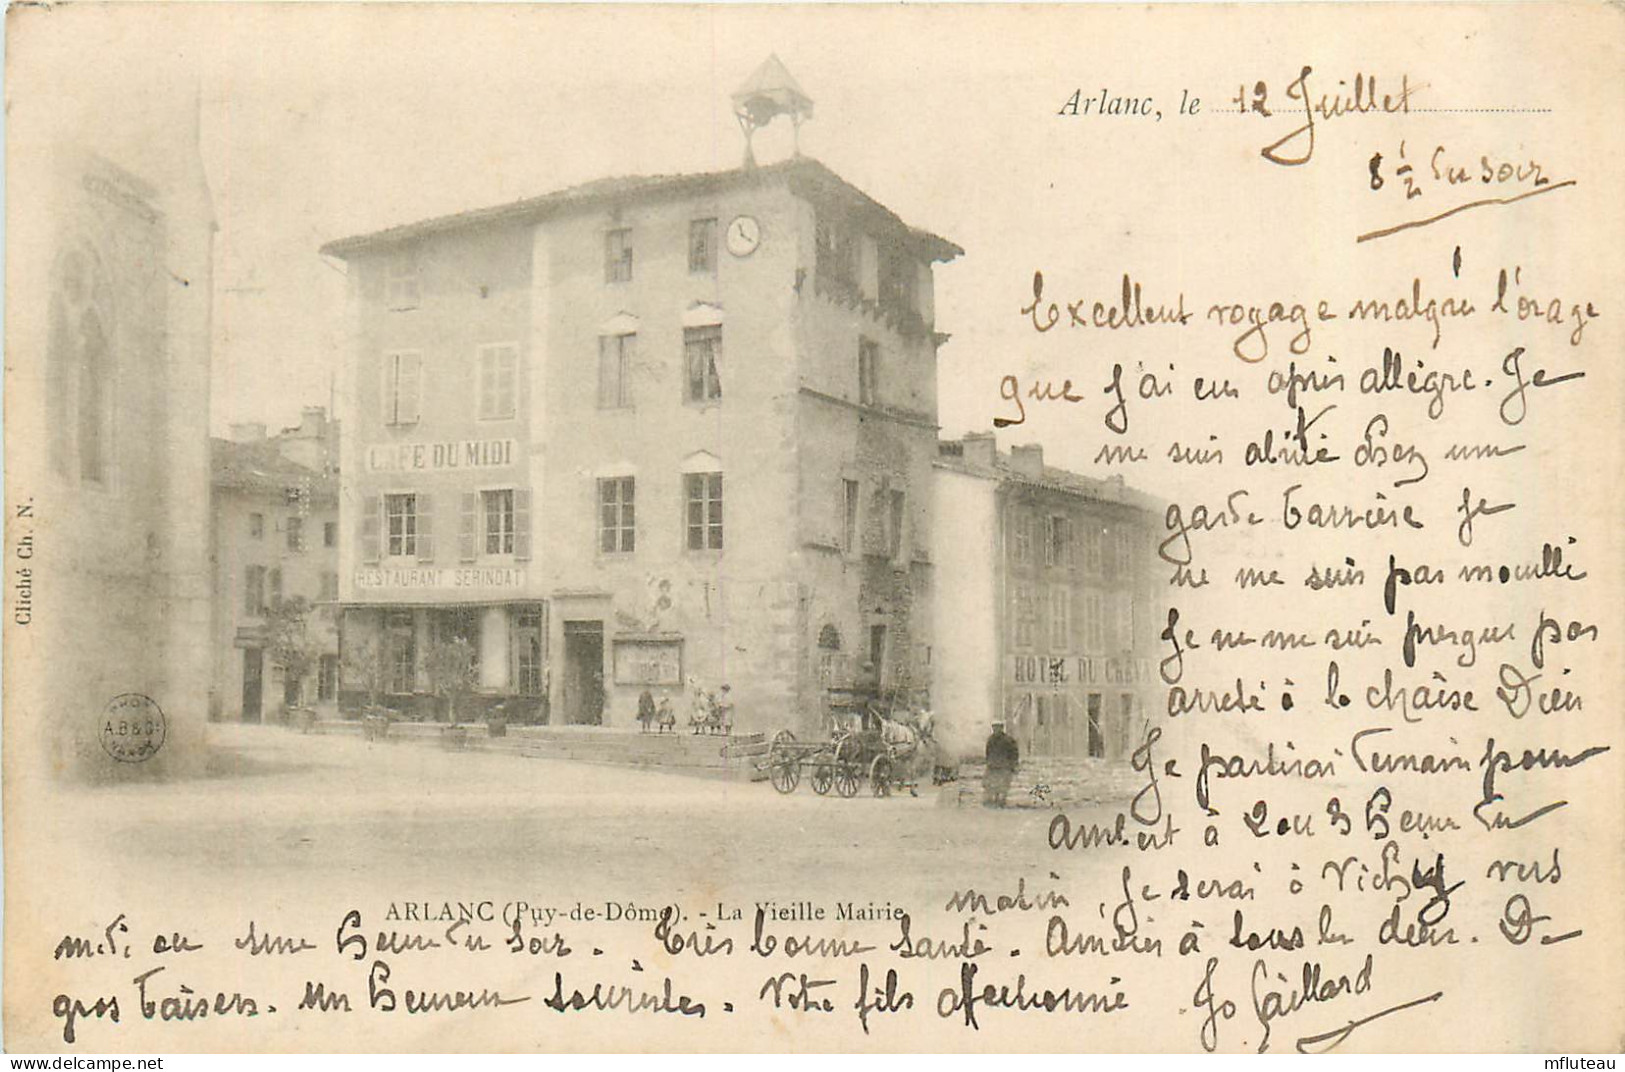 Arlanc, le 12 Juillet
8 ½ du soir
Excellent voyage malgré l'orage
que j'ai eu après allègre. Je
me suis abrité chez une
garde barrière Je
ne me suis pas mouillé
Je ne me suis presque pas
arreté à la chaise Dieu
Je partirai demain pour
Ambert à 2 ou 3 heure du
matin, Je serai à Vichy vers
midi ou une heure du soir. Très bonne Santé. Amitiés à tous les deux. De
gros baisers. Un heureux touriste. Votre fils affectionné Jo Gaillard
CAFE DU MIDI
RESTAURANT SERINDAT
HOTEL DU CHEVA
A.B & Cie
NANCY
Cliché Ch. N.
ARLANC (Puy-de-Dôme). - La Vieille Mairie
mfluteau